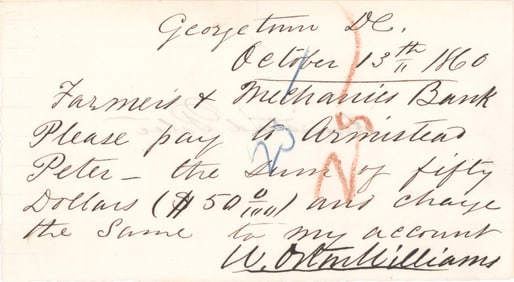 Georgetown DC.
October 13th 1860
Farmers & Mechanics Bank
Please pay to Armistead
Peter – the sum of fifty
Dollars ($50 0/100) and charge
the same to my account
W. Orton Williams